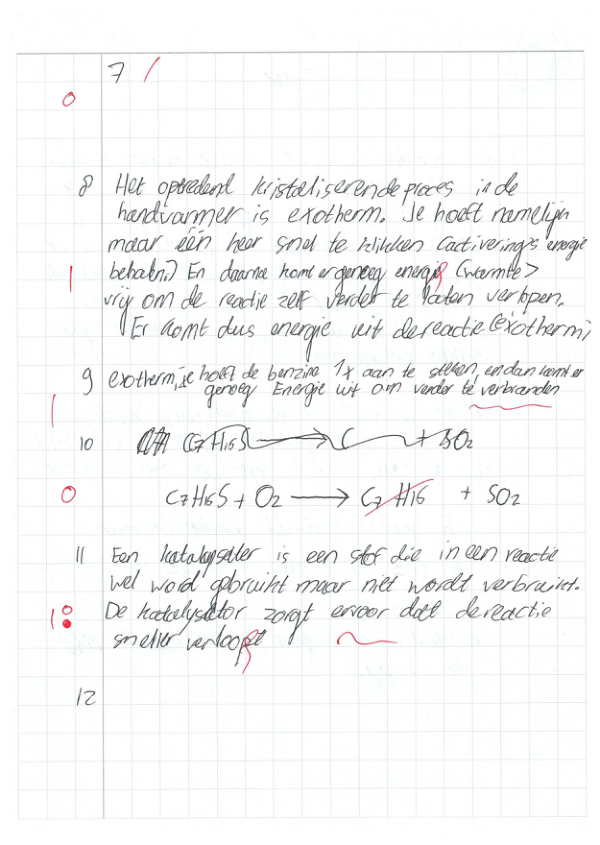 7 /
0
8 Het optredend kristaliserende proces in de
handwarmer is exotherm. Je hoeft namelijk
maar één keer snel te klikken (activerings energie
1 behalen.) En daarna komt er genoeg energie (warmte)
vrij om de reactie zelf verder te laten verlopen.
Er komt dus energie uit de reactie (exotherm)
9 exotherm, je hoeft de benzine 1x aan te steken, en dan komt er
1 genoeg Energie uit om verder te verbranden
10 C7H16S → C + SO2
0 C7H16S + O2 → C7H16 + SO2
11 Een katalysater is een stof die in een reactie
wel word gebruikt maar niet wordt verbruikt.
1 De katalysator zorgt ervoor dat de reactie
sneller verloopt
12